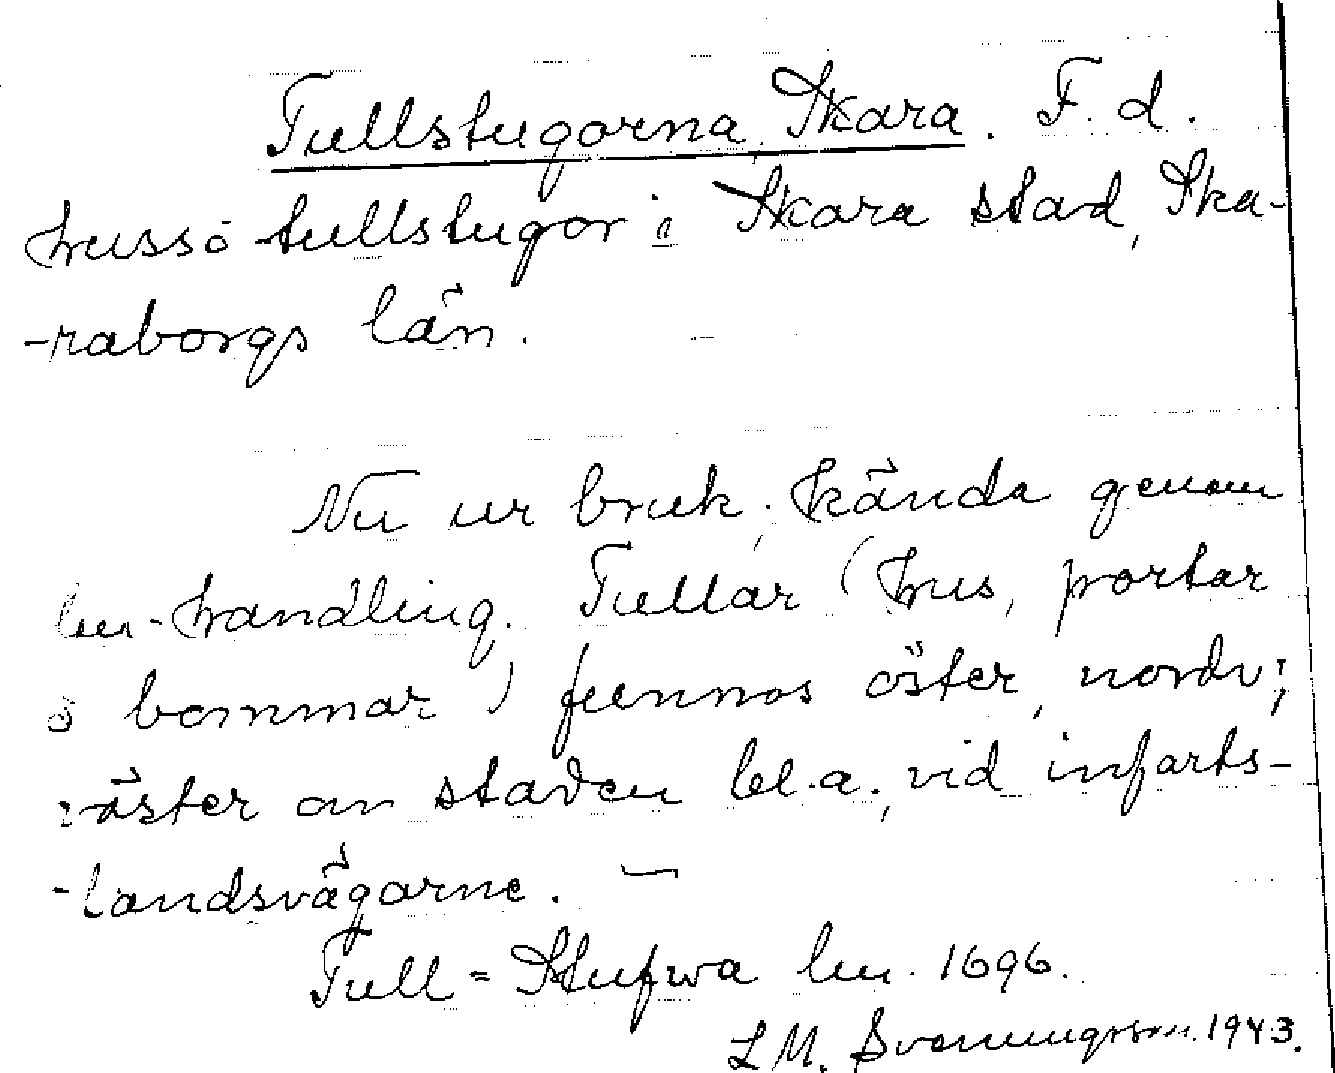 Tullstugorna, Skara. F. d.
hus o tullstugor i Skara stad, Ska-
-raborgs län.
Nu ur bruk, kända genom
lm-handling. Tullar (hus, portar
o bommar) funnos öster, nordv;
väster om staden bl.a., vid infarts-
-landsvägarne. —
Tull=Stufwa lm. 1696.
L M. Svenungsson. 1943.